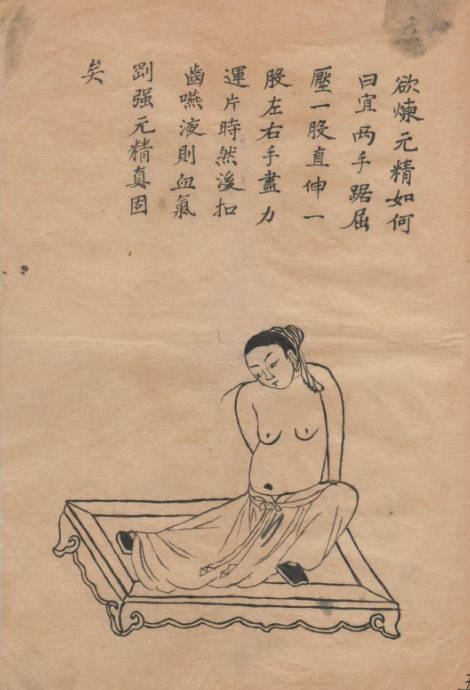 欲煉元精如何
曰宜两手踞屈
壓一股直伸一
股左右手盡力
運片時然後扣
齒嚥液則血氣
剛强元精真固
矣